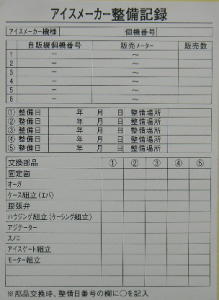 アイスメーカー整備記録
アイスメーカー機種 個機番号
自販機個機番号 販売メーター 販売数
1 ～ ～
2 ～ ～
3 ～ ～
4 ～ ～
5 ～ ～
6 ～ ～
①整備日 年 月 日 整備場所
②整備日 年 月 日 整備場所
③整備日 年 月 日 整備場所
④整備日 年 月 日 整備場所
⑤整備日 年 月 日 整備場所
交換部品 ① ② ③ ④ ⑤
固定歯
オーガ
ケース組立(エバ)
膨張弁
ハウジング組立(ケーシング組立)
アジテーター
スノコ
アイスゲート組立
モーター組立
※部品交換時、整備日番号の欄に○を記入